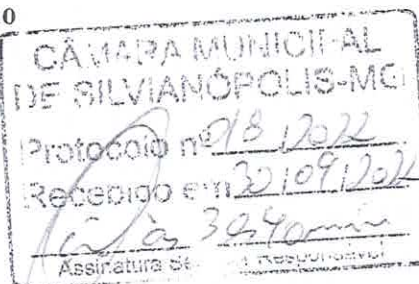 0
CÂMARA MUNICIPAL
DE SILVIANÓPOLIS-MG
Protocolo nº 018/2022
Recebido em 30/09/2022
às
Assinatura de Responsável